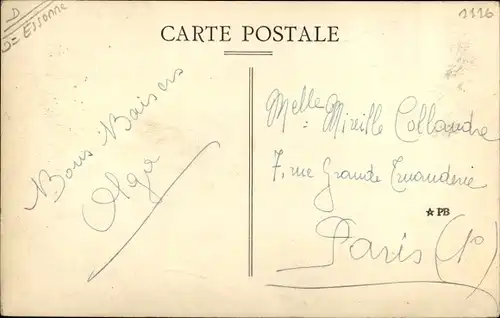 D
D= Essonne
1116
CARTE POSTALE
Bons Baisers
Olga
Melle Mireille Collandre
7, rue Grande Truanderie
☆ PB
Paris (1°)